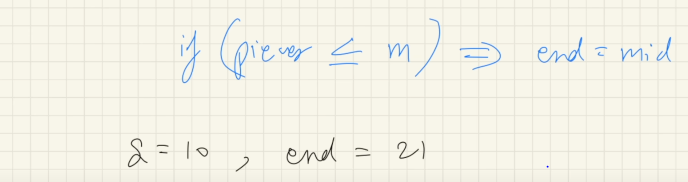 if (pieces ≤ m) ⇒ end = mid
s = 10 , end = 21